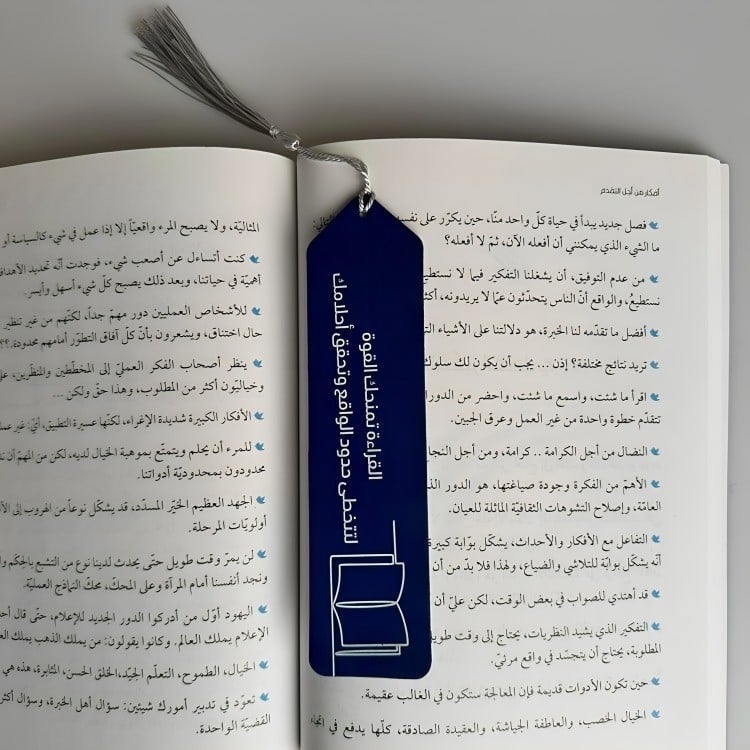 أفكار من أجل التقدم
فصل جديد يبدأ في حياة كلّ واحد منّا، حين يكرّر على نفسه
ما الشيء الذي يمكنني أن أفعله الآن، ثمّ لا أفعله؟
من عدم التوفيق، أن يشغلنا التفكير فيما لا نستطيع
نستطيعُ، والواقع أنّ الناس يتحدّثون عمّا لا يريدونه، أكثر
أفضل ما تقدّمه لنا الخبرة، هو دلالتنا على الأشياء
تريد نتائج مختلفة؟ إذن ... يجب أن يكون لك سلوك
اقرأ ما شئت، واسمع ما شئت، واحضر من الدورا
تتقدّم خطوة واحدة من غير العمل وعرق الجبين.
النضال من أجل الكرامة .. كرامة، ومن أجل النجا
الأهمّ من الفكرة وجودة صياغتها، هو الدور الذ
العامّة، وإصلاح التشوهات الثقافيّة الماثلة للعيان.
التفاعل مع الأفكار والأحداث، يشكّل بوّابة كبيرة
أنّه يشكّل بوابة للتلاشي والضياع، ولهذا فلا بدّ من أن
قد أهتدي للصواب في بعض الوقت، لكن عليّ أن
التفكير الذي يشيد النظريات، يحتاج إلى وقت طويل
المطلوبة، يحتاج أن يتجسّد في واقع مرئيّ.
حين تكون الأدوات قديمة فإن المعالجة ستكون في الغالب عقيمة.
الخيال الخصب، والعاطفة الجياشة، والعقيدة الصادقة، كلّها يدفع في اتجاه
القراءة تمنحك القوة
لتتخطى حدود الواقع وتحقق أحلامك
المثاليّة، ولا يصبح المرء واقعيّاً إلا إذا عمل في شيء كالسياسة أو
كنت أتساءل عن أصعب شيء، فوجدت أنّه تحديد الأهداف
أهميّة في حياتنا، وبعد ذلك يصبح كلّ شيء أسهل وأيسر.
للأشخاص العمليين دور مهمّ جداً، لكنّهم من غير تنظير
حال اختناق، ويشعرون بأنّ كلّ آفاق التطوّر أمامهم محدودة.؟؟
ينظر أصحاب الفكر العمليّ إلى المخطّطين والمنظّرين، على
وخياليّون أكثر من المطلوب، وهذا حقّ ولكن ...
الأفكار الكبيرة شديدة الإغراء، لكنّها عسيرة التطبيق، أيّ: غير عملـ
للمرء أن يحلم ويتمتّع بموهبة الخيال لديه، لكن من المهمّ أن
محدودون بمحدوديّة أدواتنا.
الجهد العظيم الخيّر المسدّد، قد يشكّل نوعاً من الهروب إلى الأ
أولويّات المرحلة.
لن يمرّ وقت طويل حتّى يحدث لدينا نوع من التشبع بالحِكَم وا
ونجد أنفسنا أمام المرآة وعلى المحكّ، محكّ النماذج العمليّة.
اليهود أوّل من أدركوا الدور الجديد للإعلام، حتّى قال أحد
الإعلام يملك العالم. وكانوا يقولون: من يملك الذهب يملك العا
الخيال، الطموح، التعلّم الجيّد، الخلق الحسن، المثابرة، هذه هي
تعوّد في تدبير أمورك شيئين: سؤال أهل الخبرة، وسؤال أكثر
القضيّة الواحدة.